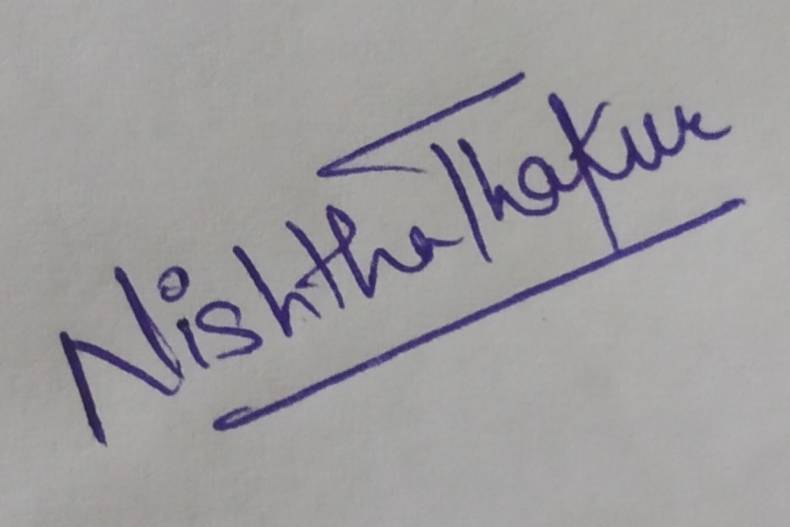 Nishtha Thakur